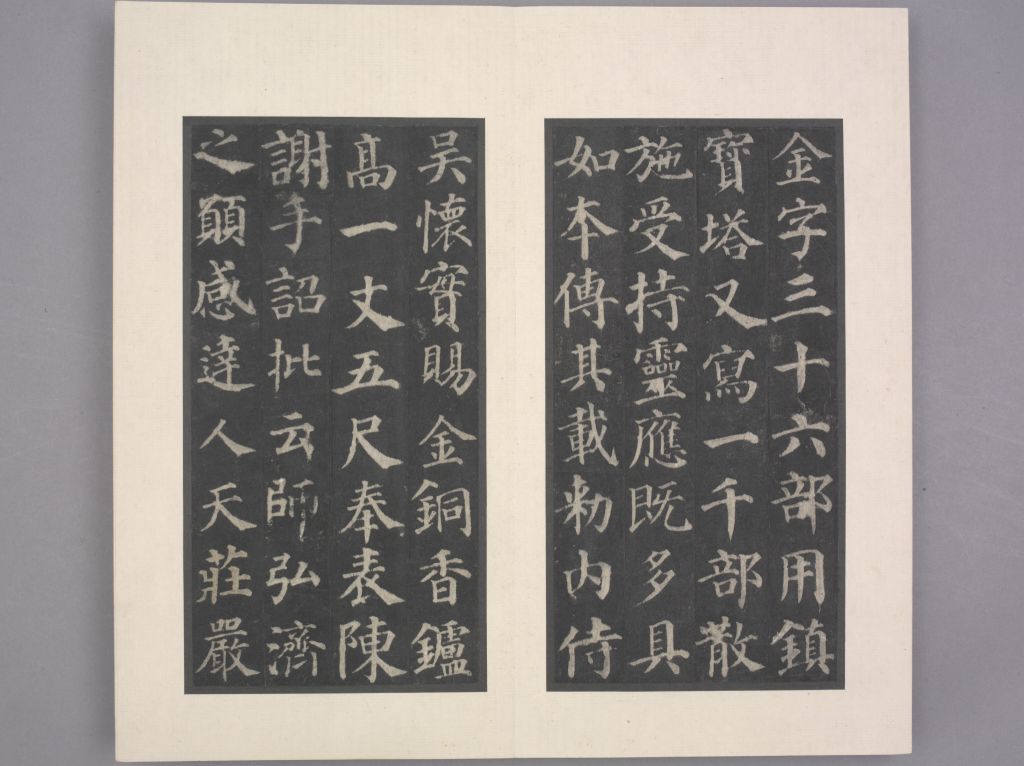 金字三十六部用鎮
寶塔又寫一千部散
施受持靈應既多具
如本傳其載敕內侍
吳懷實賜金銅香鑪
高一丈五尺奉表陳
謝手詔批云師弘濟
之願感達人天莊嚴